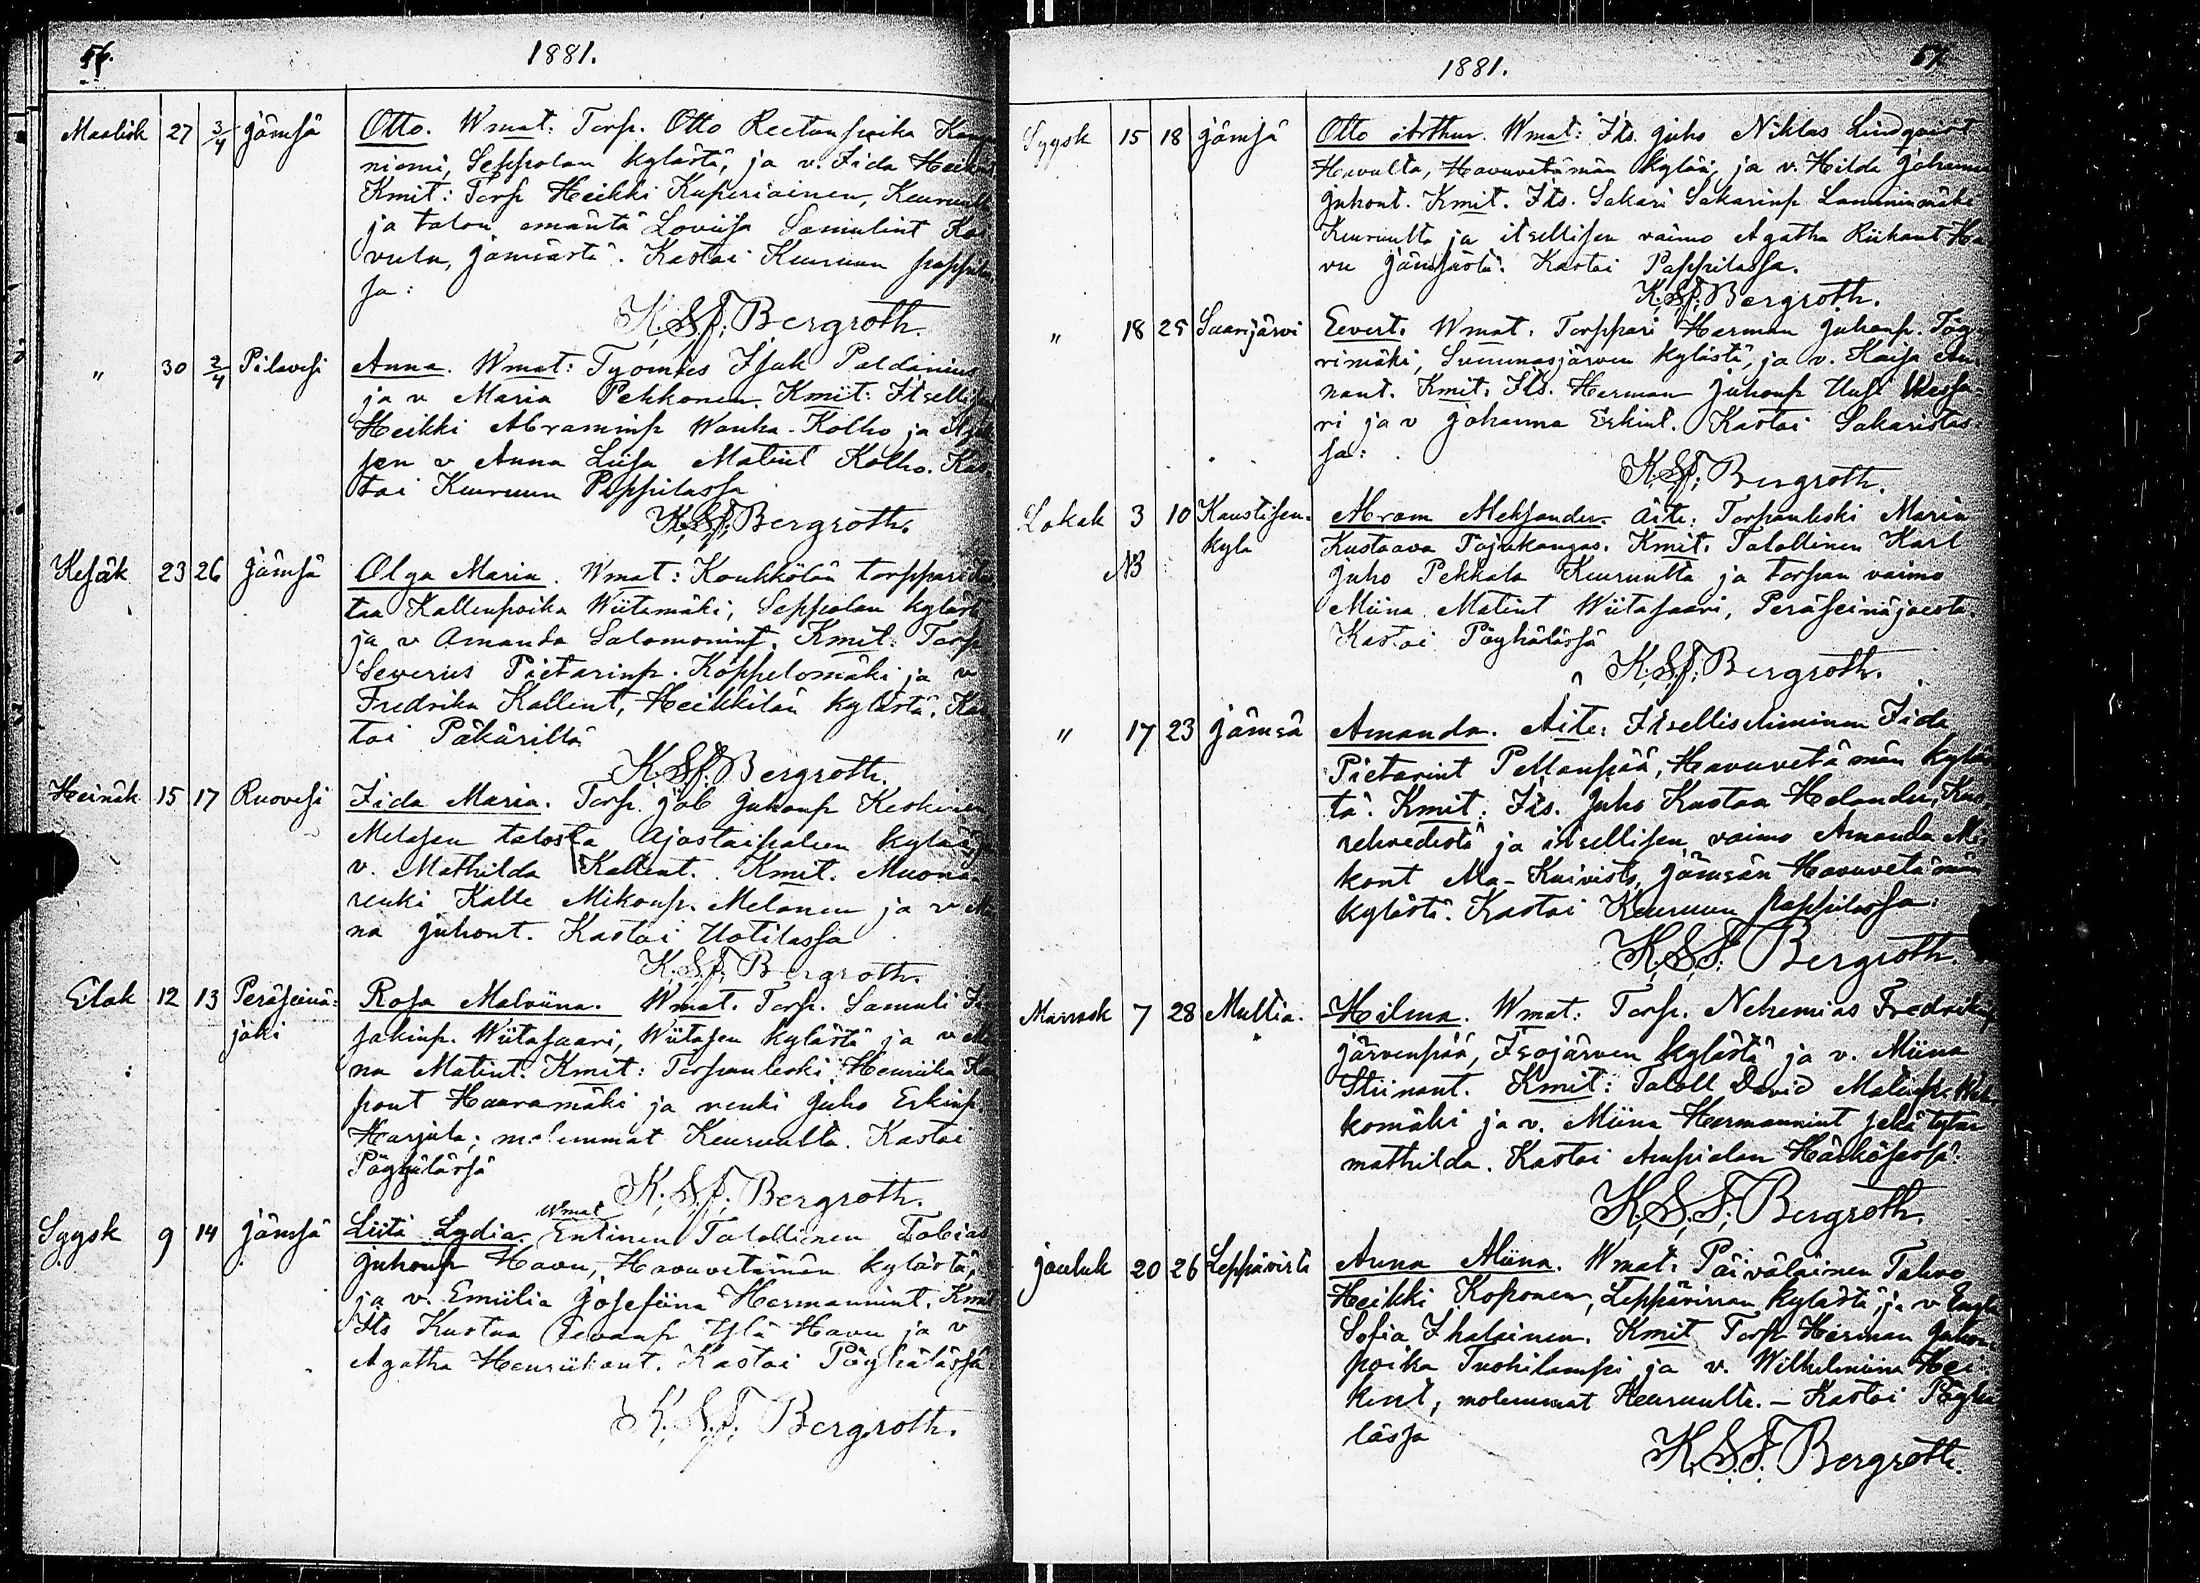 56.
1881.
Maalisk 27 3/4 Jämsä Otto. Wmat: Torp. Otto Reetanpoika
niemi, Seppolan kylästä, ja v. Iida
Kmit: Torp Heikki Kuperiainen,
ja talon emäntä Loviisa Samulint
vulu, Jämsästä. Kastoi Keuruun
sa:
K. S. F. Bergroth.
" 30 2/4 Pilavesi Anna. Wmat: Työmies Isak Paldanius
ja v Maria Pekkonen. Kmit: Itsellisen
Heikki Abraminp Wanha-Kolho ja
sen v Anna Liisa Matint Kolho. Kas
toi Keuruun Pappilassa
K. S. F. Bergroth.
Kesäk 23 26 Jämsä Olga Maria. Wmat: Koukkölän torppari
taa Kallenpoika Wiitamäki, Seppolan kyläst
ja v Amanda Salomonint. Kmit: Torp
Severius Pietarinp. Koppelomäki ja v
Fredrika Kallent, Heikkilän kylästä. Kas
toi Päkärillä
K. S. F. Bergroth.
Heinäk 15 17 Ruovesi Iida Maria. Torp. Jab Juhonp Keskinen
Melasen talosta Ajostaipaleen kylää
v. Mathilda Kallent. Kmit. Muona
renki Kalle Mikonp. Melanen ja v
na Juhont. Kastoi Uotilassa
K. S. F. Bergroth.
Elok 12 13 Peräseinä: Rosa Malviina. Wmat. Torp. Samuli
joki sakinp. Wiitasaari, Wiitasen kylästä ja v
na Matint. Kmit: Torpanleski Henriika
pont Haaramäki ja renki Juho Erkinp.
Harjula; molemmat Keuruulta. Kastoi
Pöyhälässä
K. S. F. Bergroth.
Wmat
Syysk 9 14 Jämsä Liitä Lydia. Entinen Talollinen Tobias
Juhonp Havu, Havuvetämän kylästä,
ja v. Emiilia Josefiina Hermannint. Kmit
Its Kustaa Eevanp Ylä Havu ja v
Agatha Henriikant. Kastoi Pöyhälässä
K. S. F. Bergroth.
57.
1881.
Syysk 15 18 Jämsä Otto Arthur. Wmat: Its. Juho Niklas Lindqvist
Havulta, Havuvetämän kylää, ja v. Hilda
Juhont. Kmit. Its. Sakari Sakarinp. Lamminmäki
Keuruulta ja itsellisen vaimo Agatha Riikant Ha
vu Jämsästä. Kastoi Pappilassa.
K. S. F. Bergroth.
" 18 25 Saarijärvi Eevert. Wmat. Torppari Herman Juhonp.
rimäki, Summasjärven kylästä, ja v. Kaisa
nant. Kmit. Its. Herman Juhonp Uusi Wessa-
ri ja v Johanna Erkint. Kastoi Sakaristas-
sa:
K. S. F. Bergroth.
Lokak 3 10 Kaustisen- Abram Aleksander. Äite: Torpanleski Maria
NB kylä Kustaava Pajukangas. Kmit. Talollinen Karl
Juho Pekkala Keuruulta ja torpan vaimo
Miina Matint Wiitasaari, Peräseinäjoesta
Kastoi Pöyhälässä
K. S. F. Bergroth.
" 17 23 Jämsä Amanda. Äite: Itsellisnaiminen Iida
Pietarint Pellonpää, Havuvetämän kyläs
tä. Kmit. Its. Juho Kustaa Helander,
rehvedestä ja itsellisen vaimo Amanda Mi
kont Ala-Kuivisto, Jämsän Havuvetämän
kylästä. Kastoi Keuruun pappilassa:
K. S. F. Bergroth.
Marrask 7 28 Multia. Hilma. Wmat: Torp. Nehemias Fredrikinp
Järvenpää, Isojärven kylästä ja v. Miina
Stiinant. Kmit: Taloll David Matinp.
komäki ja v. Miina Hermannint sekä tytär
mathilda. Kastoi Ampialan Härkösessä:
K. S. F. Bergroth.
Jouluk 20 26 Leppävirta Anna Miina. Wmat: Päiväläinen Tahvo
Heikki Koponen, Leppävirran kylästä, ja v
Sofia Ihalainen. Kmit Torp Herman Juhon
poika Tuohilampi ja v. Wilhelmiina Hei
kint, molemmat Keuruulta. - Kastoi Pöyhä
lässä
K. S. F. Bergroth.